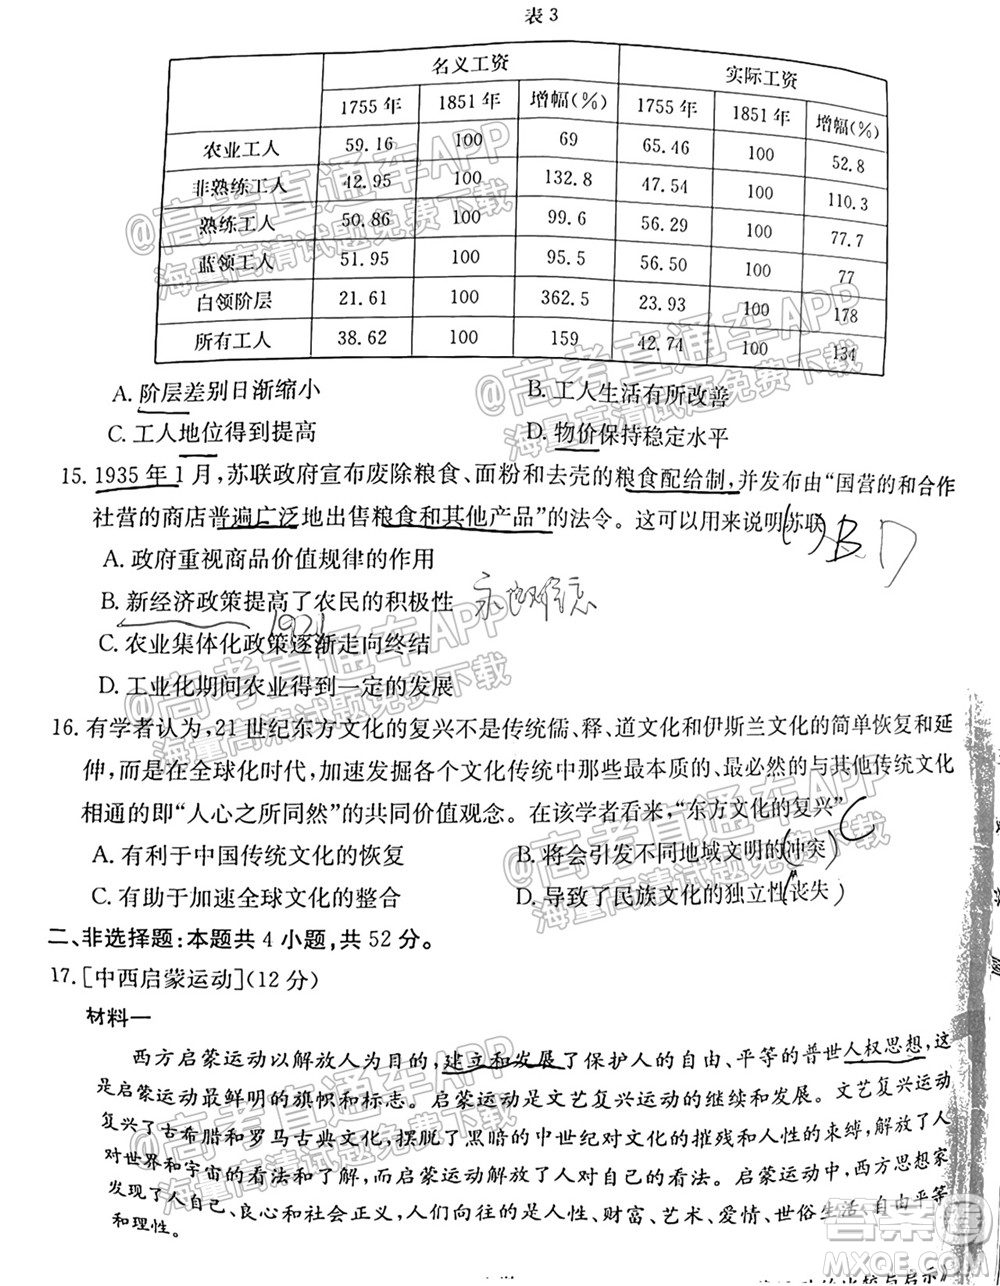 表 3
名义工资 实际工资
1755 年 1851 年 增幅(%) 1755 年 1851 年 增幅(%)
农业工人 59.16 100 69 65.46 100 52.8
非熟练工人 42.95 100 132.8 47.54 100 110.3
熟练工人 50.86 100 99.6 56.29 100 77.7
蓝领工人 51.95 100 95.5 56.50 100 77
白领阶层 21.61 100 362.5 23.93 100 178
所有工人 38.62 100 159 42.74 100 134
A. 阶层差别日渐缩小 B. 工人生活有所改善
C. 工人地位得到提高 D. 物价保持稳定水平
15. 1935 年 1 月，苏联政府宣布废除粮食、面粉和去壳的粮食配给制，并发布由“国营的和合作
社营的商店普遍广泛地出售粮食和其他产品”的法令。这可以用来说明苏联( ) B D
A. 政府重视商品价值规律的作用
B. 新经济政策提高了农民的积极性
1921
C. 农业集体化政策逐渐走向终结
D. 工业化期间农业得到一定的发展
16. 有学者认为，21 世纪东方文化的复兴不是传统儒、释、道文化和伊斯兰文化的简单恢复和延
伸，而是在全球化时代，加速发掘各个文化传统中那些最本质的、最必然的与其他传统文化
相通的即“人心之所同然”的共同价值观念。在该学者看来，“东方文化的复兴”( C
A. 有利于中国传统文化的恢复 B. 将会引发不同地域文明的冲突
C. 有助于加速全球文化的整合 D. 导致了民族文化的独立性丧失
二、非选择题：本题共 4 小题，共 52 分。
17. [中西启蒙运动](12 分)
材料一
西方启蒙运动以解放人为目的，建立和发展了保护人的自由、平等的普世人权思想，这
是启蒙运动最鲜明的旗帜和标志。启蒙运动是文艺复兴运动的继续和发展。文艺复兴运动
复兴了古希腊和罗马古典文化，摆脱了黑暗的中世纪对文化的摧残和人性的束缚，解放了人
对世界和宇宙的看法和了解，而启蒙运动解放了人对自己的看法。启蒙运动中，西方思想家
发现了人自己、良心和社会正义，人们向往的是人性、财富、艺术、爱情、世俗生活、自由平等
和理性。
@高考直通车APP
海量高清试题免费下载
@高考直通车APP
海量高清试题免费下载
@高考直通车APP
海量高清试题免费下载
@高考直通车APP
海量高清试题免费下载
@高考直通车APP
海量高清试题免费下载
答案圈
MXQE.COM